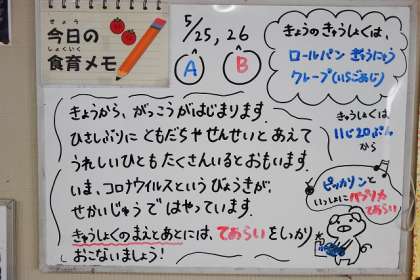 きょう
今日の
しょくいく
食育メモ
5/25,26
A
B
きょうのきゅうしょくは、
ロールパン ぎゅうにゅう
クレープ(いちごあじ)
きゅうしょくは
11じ20ぷん
から
きょうから、がっこうがはじまります。
ひさしぶりに ともだちや せんせいと あえて
うれしいひとも たくさんいるとおもいます。
いま、コロナウイルスという びょうきが、
せかいじゅうで はやっています。
きゅうしょくのまえとあとには、てあらいをしっかり
おこないましょう!
ピッカリンと
いっしょに パプリカ
てあらい